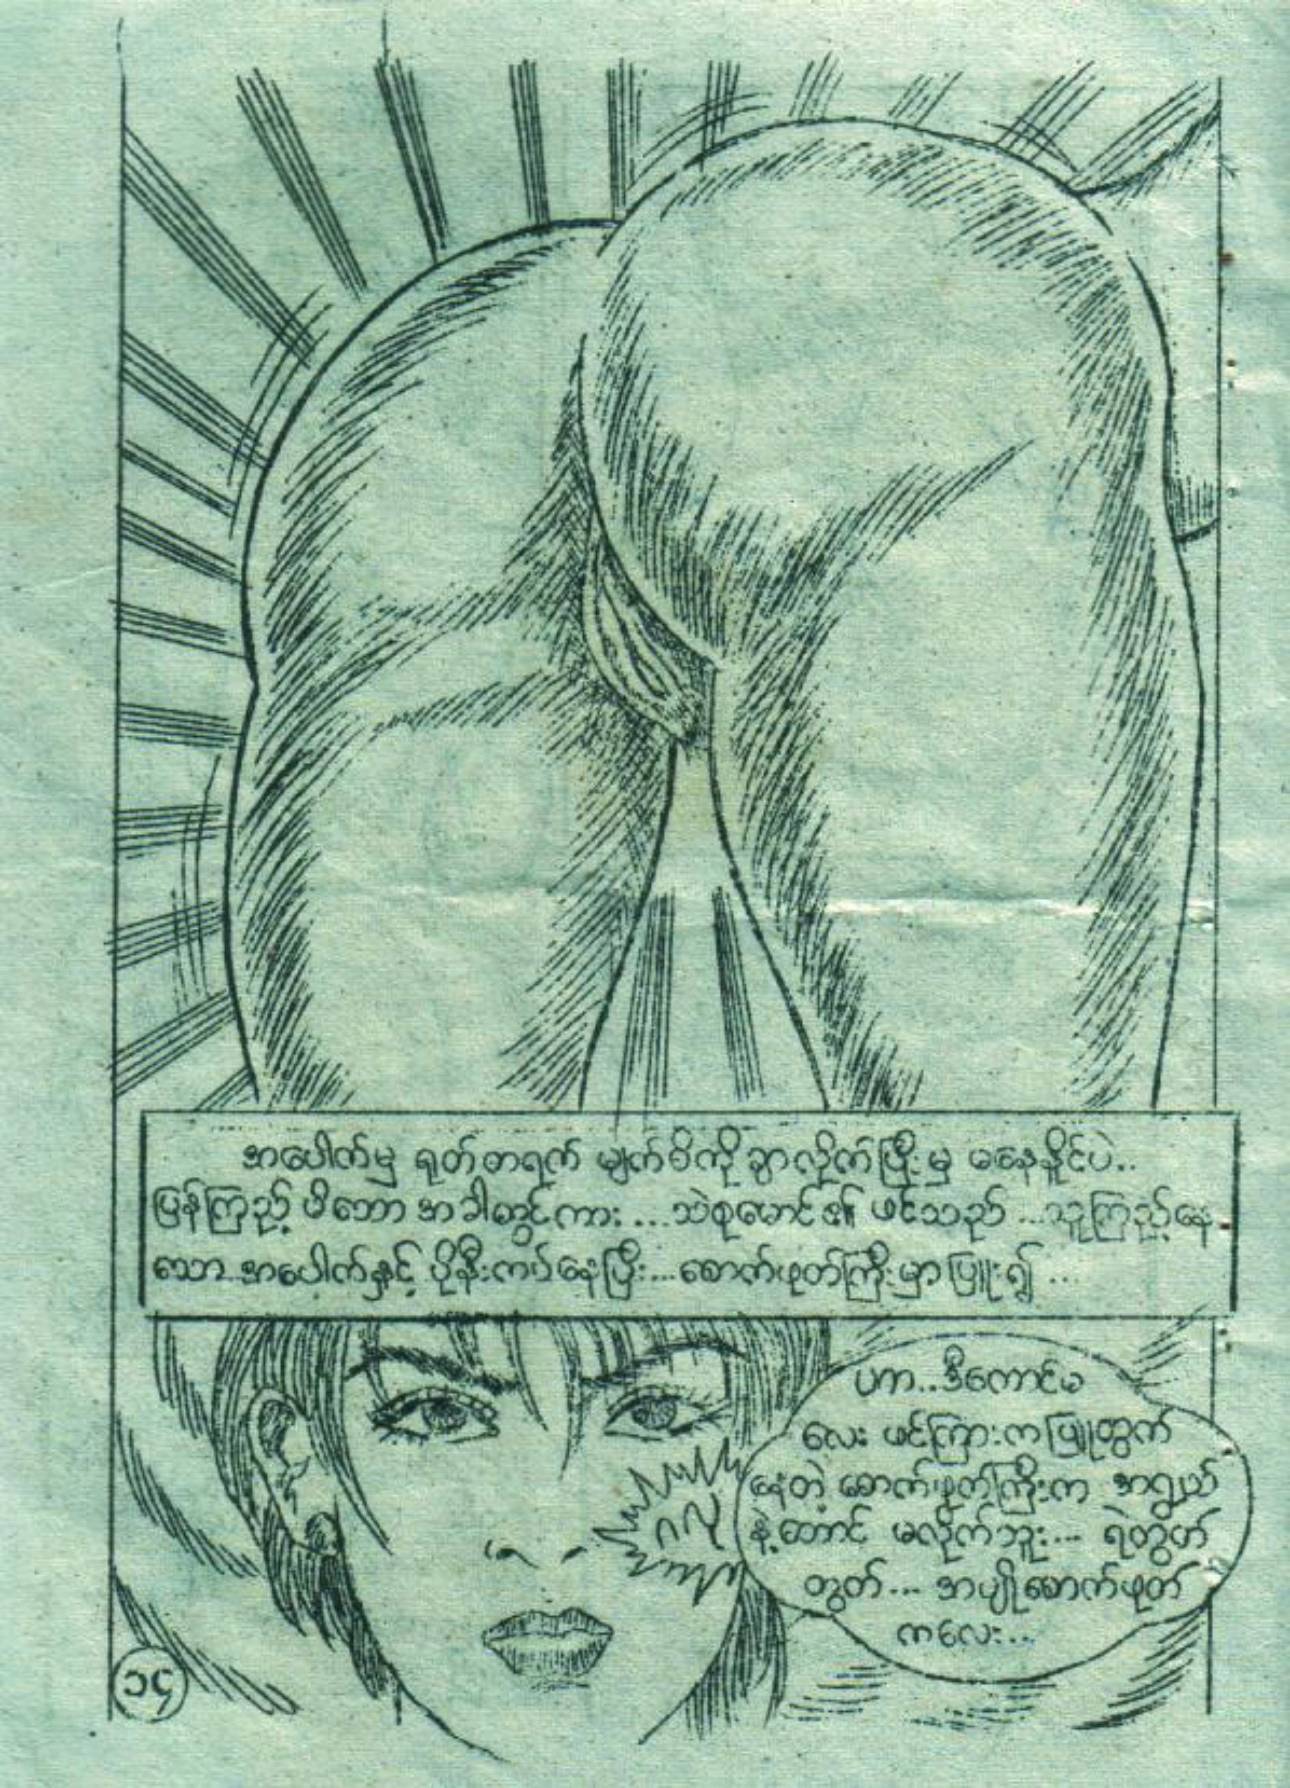 အပေါက်မှ ရုတ်တရက် မျက်စိကို ခွာလိုက်ပြီးမှ မနေနိုင်ပဲ..
ပြန်ကြည့် မိသော အခါတွင်ကား ...သဲစုမောင်၏ ဖင်သည် ...သူကြည့်နေ
သော အပေါက်နှင့် ပိုနီးကပ်နေပြီး...စောက်ဖုတ်ကြီးမှာပြူး၍ ...
ဟာ..ဒီကောင်မ
လေး ဖင်ကြားကပြူထွက်
နေတဲ့ စောက်ဖုတ်ကြီးက အရွယ်
နဲ့တောင် မလိုက်ဘူး... ရဲတွတ်
တွတ်... အပျိုစောက်ဖုတ်
ကလေး..
ဂလု
၁၄